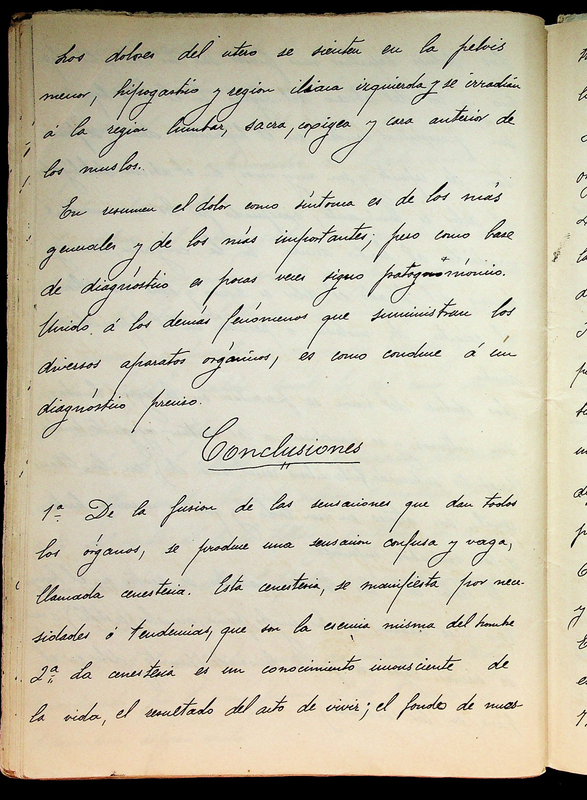 Los dolores del utero se sienten en la pelvis
menor, hipogastrio y region iliaca izquierda y se irradian
á la region lumbar, sacra, coxigea y cara anterior de
los muslos.
En resumen el dolor como síntoma es de los más
generales y de los más importantes; pero como base
de diagnóstico es pocas veces signo patognomónico.
Unido á los demás fenómenos que suministran los
diversos aparatos orgánicos, es como conduce á un
diagnóstico preciso.
Conclusiones
1ª De la fusion de las sensaciones que dan todos
los órganos, se produce una sensacion confusa y vaga,
llamada cenestesia. Esta cenestesia, se manifiesta por nece-
sidades ó tendencias, que son la esencia misma del hombre
2ª La cenestesia es un conocimiento inconsciente de
la vida, el resultado del acto de vivir; el fondo de nues-